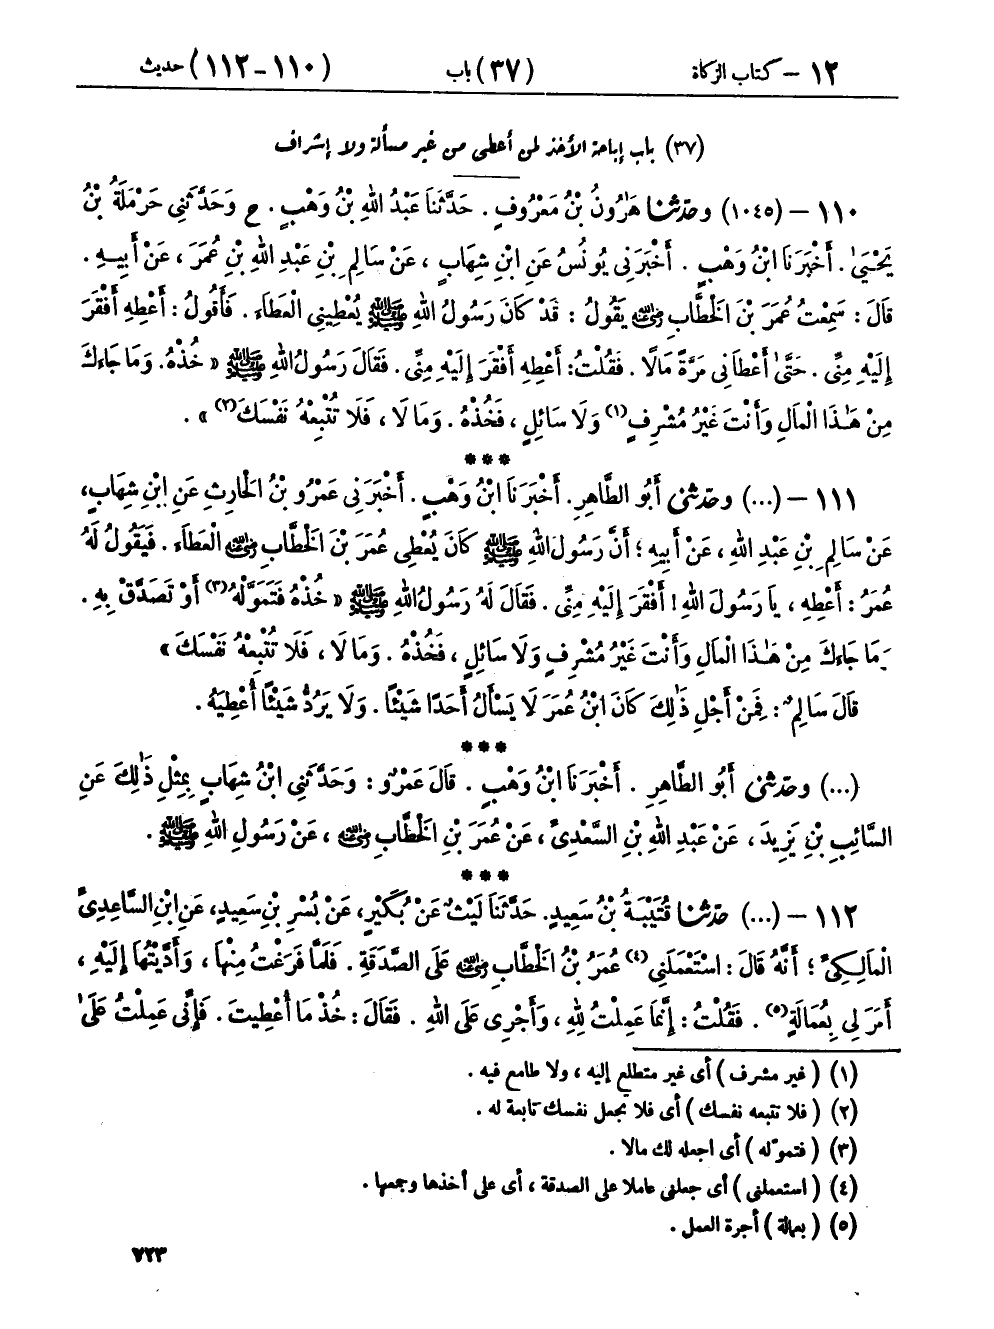 ١٢ – كتاب الزكاة (٣٧) باب (١١٠ – ١١٢) حديث
(٣٧) باب إباحة الأخذ لمن أعطى من غير مسألة ولا إشراف
١١٠ – (١٠٤٥) وحدثنا هَرُونُ بْنُ مَعْرُوفٍ . حَدَّثَنَا عَبْدُ اللهِ بْنُ وَهْبٍ . ح وَحَدَّثَنِي حَرْمَلَةُ بْنُ
يَحْيَىٰ . أَخْبَرَنَا ابْنُ وَهْبٍ . أَخْبَرَنِي يُونُسُ عَنِ ابْنِ شِهَابٍ ، عَنْ سَالِمِ بْنِ عَبْدِ اللهِ بْنِ عُمَرَ ، عَنْ أَبِيهِ .
قَالَ : سَمِعْتُ عُمَرَ بْنَ الْخَطَّابِ رضي الله عنه يَقُولُ : قَدْ كَانَ رَسُولُ اللهِ ﷺ يُعْطِينِي الْعَطَاءَ . فَأَقُولُ : أَعْطِهِ أَفْقَرَ
إِلَيْهِ مِنِّي . حَتَّىٰ أَعْطَانِي مَرَّةً مَالًا . فَقُلْتُ : أَعْطِهِ أَفْقَرَ إِلَيْهِ مِنِّي . فَقَالَ رَسُولُ اللهِ ﷺ « خُذْهُ . وَمَا جَاءَكَ
مِنْ هَـٰذَا الْمَالِ وَأَنْتَ غَيْرُ مُشْرِفٍ(١) وَلَا سَائِلٍ ، فَخُذْهُ . وَمَا لَا ، فَلَا تُتْبِعْهُ نَفْسَكَ(٢) » .
***
١١١ – (...) وحدثني أَبُو الطَّاهِرِ . أَخْبَرَنَا ابْنُ وَهْبٍ . أَخْبَرَنِي عَمْرُو بْنُ الْحَارِثِ عَنِ ابْنِ شِهَابٍ ،
عَنْ سَالِمِ بْنِ عَبْدِ اللهِ ، عَنْ أَبِيهِ ؛ أَنَّ رَسُولَ اللهِ ﷺ كَانَ يُعْطِي عُمَرَ بْنَ الْخَطَّابِ رضي الله عنه الْعَطَاءَ . فَيَقُولُ لَهُ
عُمَرُ : أَعْطِهِ ، يَا رَسُولَ اللهِ ! أَفْقَرَ إِلَيْهِ مِنِّي . فَقَالَ لَهُ رَسُولُ اللهِ ﷺ « خُذْهُ فَتَمَوَّلْهُ(٣) أَوْ تَصَدَّقْ بِهِ .
وَمَا جَاءَكَ مِنْ هَـٰذَا الْمَالِ وَأَنْتَ غَيْرُ مُشْرِفٍ وَلَا سَائِلٍ ، فَخُذْهُ . وَمَا لَا ، فَلَا تُتْبِعْهُ نَفْسَكَ »
قَالَ سَالِمٌ : فَمِنْ أَجْلِ ذَٰلِكَ كَانَ ابْنُ عُمَرَ لَا يَسْأَلُ أَحَدًا شَيْئًا . وَلَا يَرُدُّ شَيْئًا أُعْطِيَهُ .
***
(...) وحدثني أَبُو الطَّاهِرِ . أَخْبَرَنَا ابْنُ وَهْبٍ . قَالَ عَمْرٌو : وَحَدَّثَنِي ابْنُ شِهَابٍ بِمِثْلِ ذَٰلِكَ عَنِ
السَّائِبِ بْنِ يَزِيدَ ، عَنْ عَبْدِ اللهِ بْنِ السَّعْدِيِّ ، عَنْ عُمَرَ بْنِ الْخَطَّابِ رضي الله عنه ، عَنْ رَسُولِ اللهِ ﷺ .
***
١١٢ – (...) حدثنا قُتَيْبَةُ بْنُ سَعِيدٍ . حَدَّثَنَا لَيْثٌ عَنْ بُكَيْرٍ ، عَنْ بُسْرِ بْنِ سَعِيدٍ ، عَنِ ابْنِ السَّاعِدِيِّ
الْمَالِكِيِّ ؛ أَنَّهُ قَالَ : اسْتَعْمَلَنِي(٤) عُمَرُ بْنُ الْخَطَّابِ رضي الله عنه عَلَى الصَّدَقَةِ . فَلَمَّا فَرَغْتُ مِنْهَا ، وَأَدَّيْتُهَا إِلَيْهِ ،
أَمَرَ لِي بِعُمَالَةٍ(٥) . فَقُلْتُ : إِنَّمَا عَمِلْتُ لِلهِ ، وَأَجْرِي عَلَى اللهِ . فَقَالَ : خُذْ مَا أُعْطِيتَ . فَإِنِّي عَمِلْتُ عَلَىٰ
(١) ( غير مشرف ) أى غير متطلع إليه ، ولا طامع فيه .
(٢) ( فلا تتبعه نفسك ) أى فلا تجعل نفسك تابعة له .
(٣) ( فتموّله ) أى اجعله لك مالا .
(٤) ( استعملنى ) أى جعلنى عاملا على الصدقة ، أى على أخذها وجمعها .
(٥) ( بعمالة ) أجرة العمل .
٧٢٣